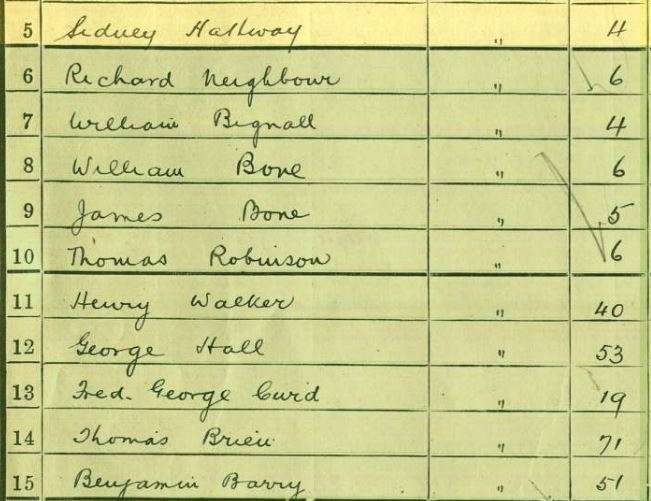 5 Sidney Hallway " 4
6 Richard Neighbour " 6
7 William Bignall " 4
8 William Bone " 6
9 James Bone " 5
10 Thomas Robinson " 6
11 Henry Walker " 40
12 George Hall " 53
13 Fred. George Curd " 19
14 Thomas Brien " 71
15 Benjamin Barry " 51